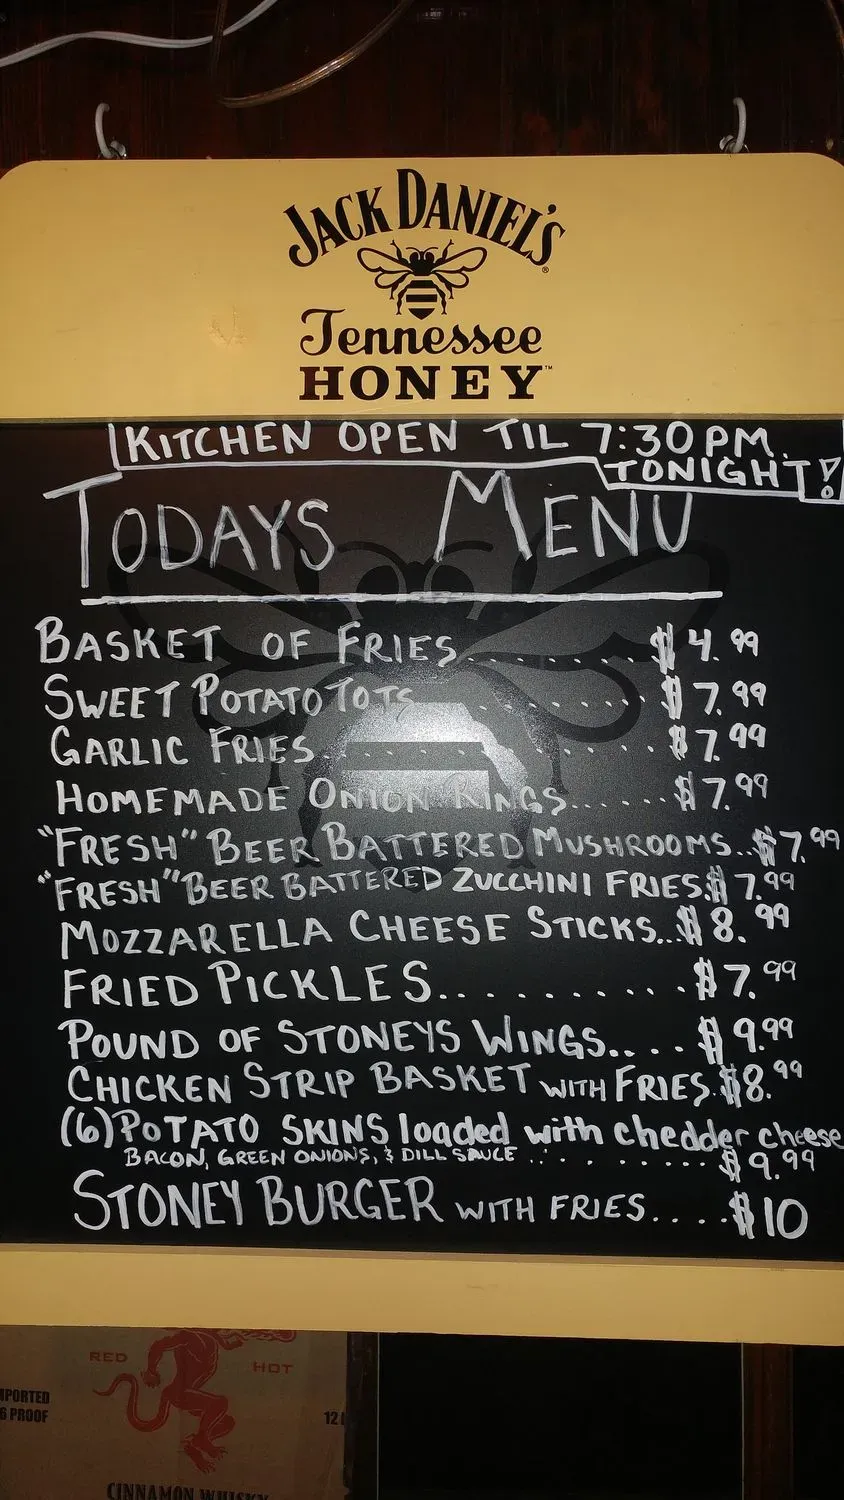 JACK DANIEL'S®
Tennessee
HONEY™
KITCHEN OPEN TIL 7:30 PM
TONIGHT!
TODAYS MENU
BASKET OF FRIES.............$4.99
SWEET POTATO TOTS........$7.99
GARLIC FRIES...........$7.99
HOMEMADE ONION RINGS......$7.99
"FRESH" BEER BATTERED MUSHROOMS..$7.99
"FRESH" BEER BATTERED ZUCCHINI FRIES.$7.99
MOZZARELLA CHEESE STICKS...$8.99
FRIED PICKLES...........$7.99
POUND OF STONEYS WINGS....$9.99
CHICKEN STRIP BASKET WITH FRIES.$8.99
(6) POTATO SKINS loaded with chedder cheese
BACON, GREEN ONIONS, & DILL SAUCE...........$9.99
STONEY BURGER WITH FRIES....$10
RED HOT
6 PROOF
CINNAMON WHISKY